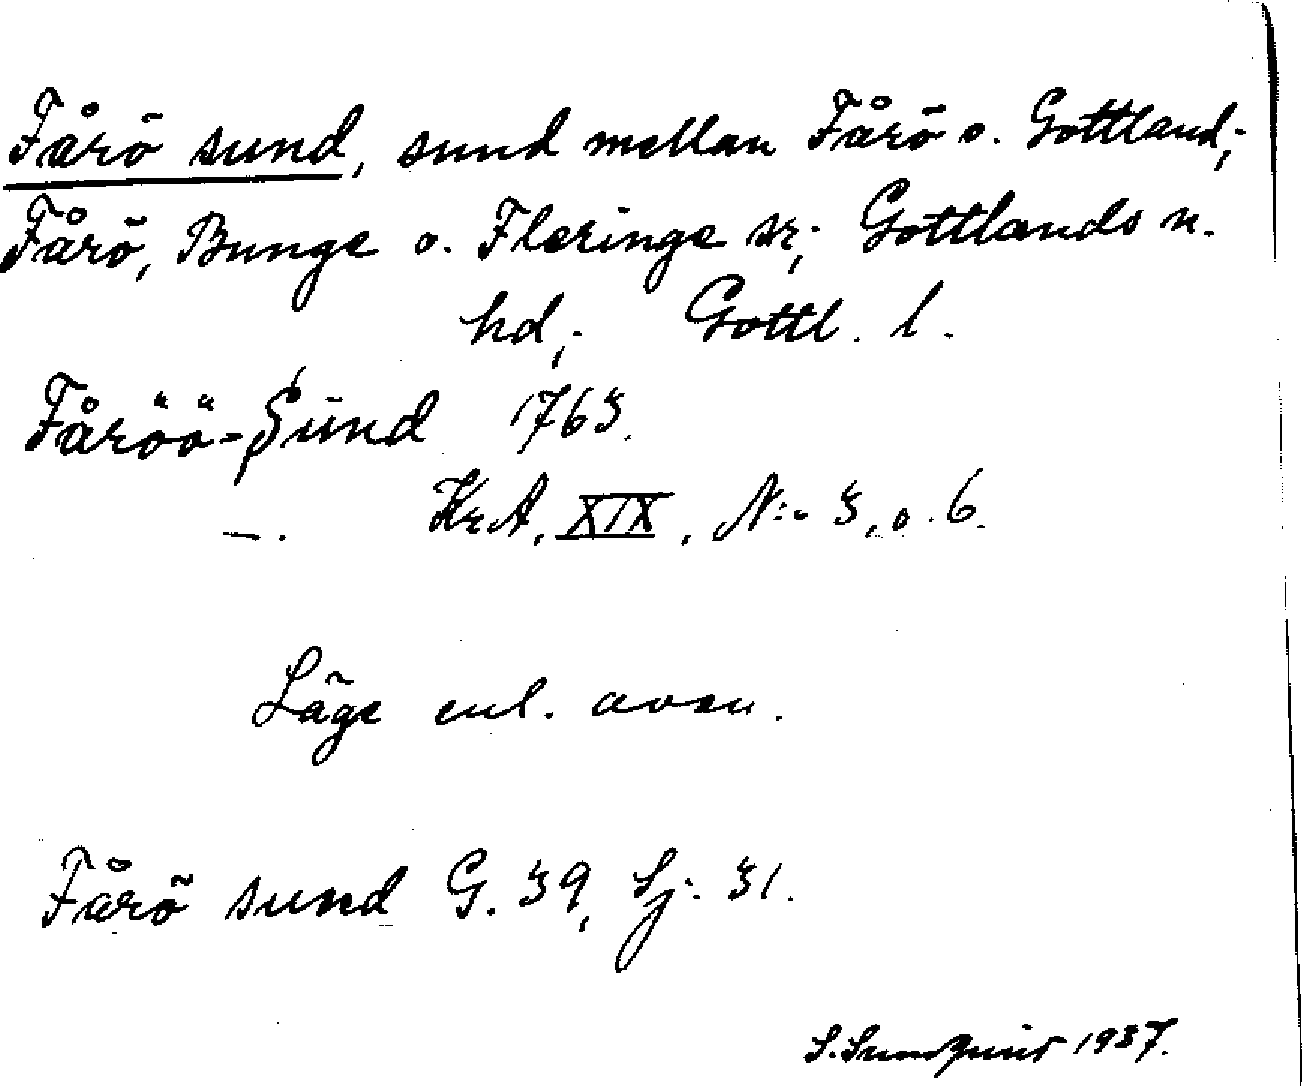 Fårö sund, sund mellan Fårö o. Gottland;
Fårö, Bunge o. Fleringe sr; Gottlands n.
hd; Gottl. l.
Fåröö-Sund 1763.
—. KrA, XIX, N:o 3, o. 6.
Läge enl. ovan.
Fårö sund G. 39, Sj: 31.
S. Sundquist 1937.